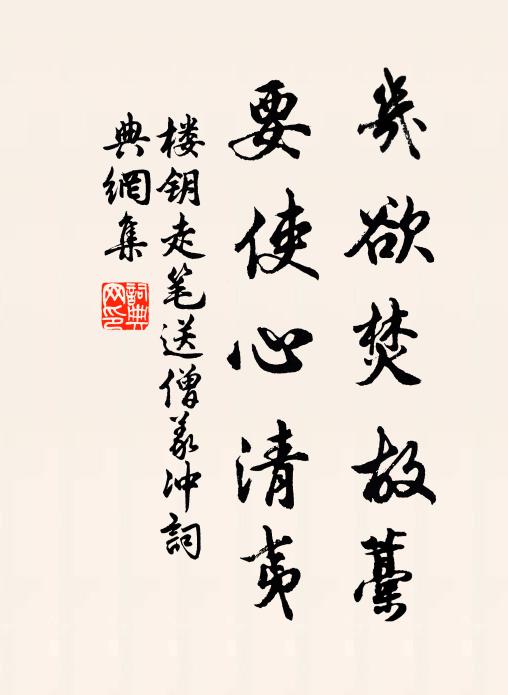 幾欲焚故藁
要使心清夷
楼钥走笔送僧义冲詞
典網集
詞典网印